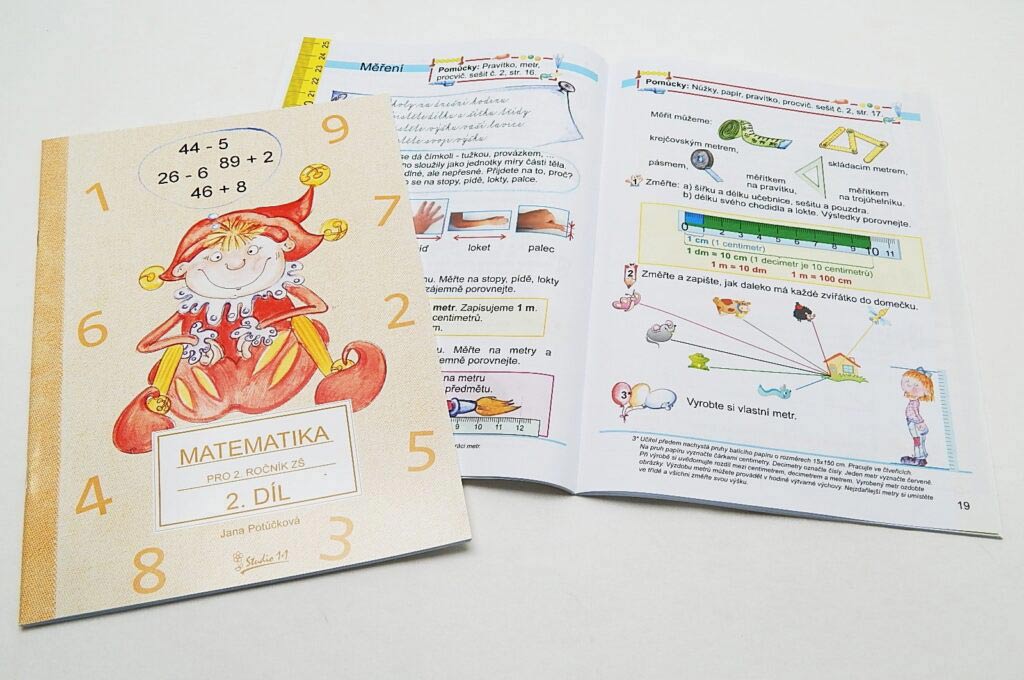 44 - 5
89 + 2
26 - 6
46 + 8
9
1
7
6
2
4
5
8
3
MATEMATIKA
PRO 2. ROČNÍK ZŠ
2. DÍL
Jana Potůčková
Studio 1+1
22 23 24 25
Měření
Pomůcky: Pravítko, metr,
procvič. sešit č. 2, str. 16.
výška vaší lavice
svoje výška
se dá čímkoli - tužkou, provázkem, ...
sloužily jako jednotky míry části těla.
ale nepřesné. Přijdete na to, proč?
se na stopy, pídě, lokty, palce.
loket
palec
Měřte na stopy, pídě, lokty
porovnejte.
metr. Zapisujeme 1 m.
centimetrů.
Měřte na metry a
porovnejte.
na metru
předmětu.
7 8 9 10 11 12
metr.
Pomůcky: Nůžky, papír, pravítko, procvič. sešit č. 2, str. 17.
Měřit můžeme:
krejčovským metrem,
skládacím metrem,
pásmem,
měřítkem
na pravítku,
měřítkem
na trojúhelníku.
1
Změřte: a) šířku a délku učebnice, sešitu a pouzdra.
b) délku svého chodidla a lokte. Výsledky porovnejte.
0 1 2 3 4 5 6 7 8 9 10 11
1 cm (1 centimetr)
1 dm = 10 cm (1 decimetr je 10 centimetrů)
1 m = 10 dm 1 m = 100 cm
2
Změřte a zapište, jak daleko má každé zvířátko do domečku.
3*
Vyrobte si vlastní metr.
3* Učitel předem nachystá pruhy balicího papíru o rozměrech 15x150 cm. Pracujte ve čtveřicích.
Na pruh papíru vyznačte čárkami centimetry. Decimetry označte čísly. Jeden metr vyznačte červeně.
Při výrobě si uvědomujte rozdíl mezi centimetrem, decimetrem a metrem. Vyrobený metr ozdobte
obrázky. Výzdobu metrů můžete provádět v hodině výtvarné výchovy. Nejzdařilejší metry si umístěte
ve třídě a všichni změřte svou výšku.
19